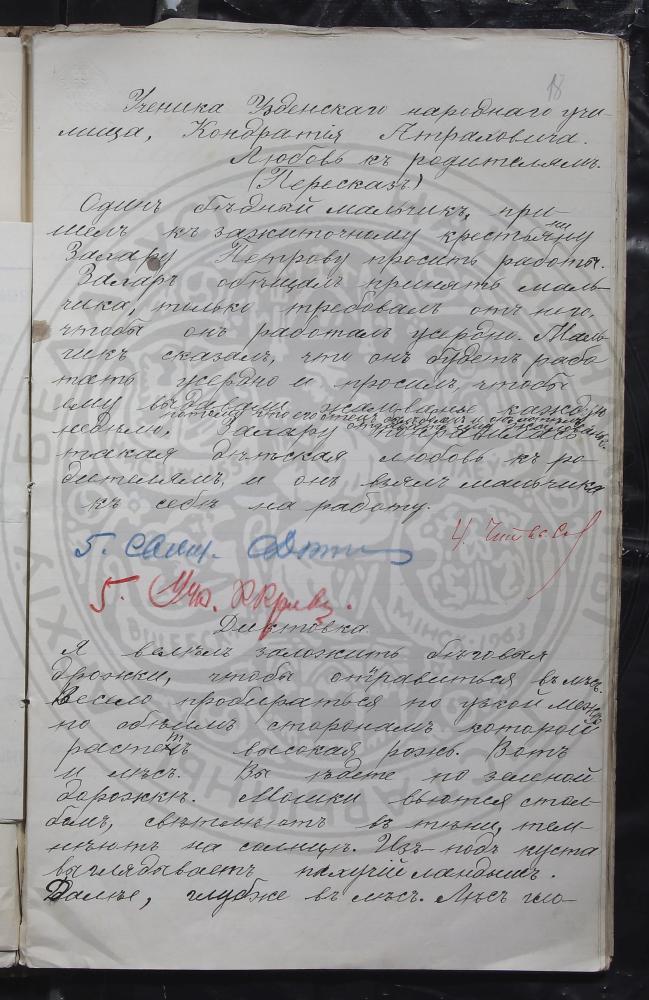 18
Ученика Узденскаго народнаго учи-
лища, Кондратія Атраховича.
Любовь къ родителямъ.
(Пересказъ)
Одинъ бѣдный мальчикъ, при-
шелъ къ зажиточному крестьянину
Захару Петрову просить работы.
Захаръ обѣщалъ принять маль-
чика, только требовалъ отъ него,
чтобы онъ работалъ усердно. Маль-
чикъ сказалъ, что онъ будетъ рабо
тать усердно и просилъ, чтобы
ему выдавали жалованье каждую
потому что его отецъ
недѣлю, Захару понравилась
такая дѣтская любовь къ ро
дителямъ, и онъ взялъ мальчика
къ себѣ на работу.
4.
5.
5. Уч.
Диктовка.
Я велѣлъ заложить бѣговыя
дрожки, чтобы отправиться въ лѣсъ.
Весело пробираться по узкой межѣ
по обѣимъ сторонамъ которой
растетъ высокая рожь. Вотъ
и лѣсъ. Вы ѣдете по зеленой
дорожкѣ. Мошки вьются стол-
бомъ, свѣтлѣютъ въ тѣни, тем-
нѣютъ на солнцѣ. Изъ-подъ куста
выглядываетъ пахучій ландышъ.
Далѣе, глубже въ лѣсъ. Лѣсъ гло-